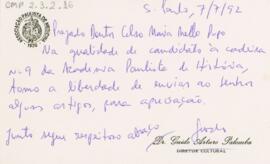 CMP 2.3.2.86
S. Paulo, 7/7/92
ASSOCIAÇÃO PAULISTA DE
1930
Prezado Doutor Celso Maria Mello Pupo
Na qualidade de candidato à cadeira
nº 9 da Academia Paulista de História,
tomo a liberdade de enviar ao senhor
alguns artigos, para apreciação.
Junto segue respeitoso abraço
Dr. Guido Arturo Palomba
DIRETOR CULTURAL